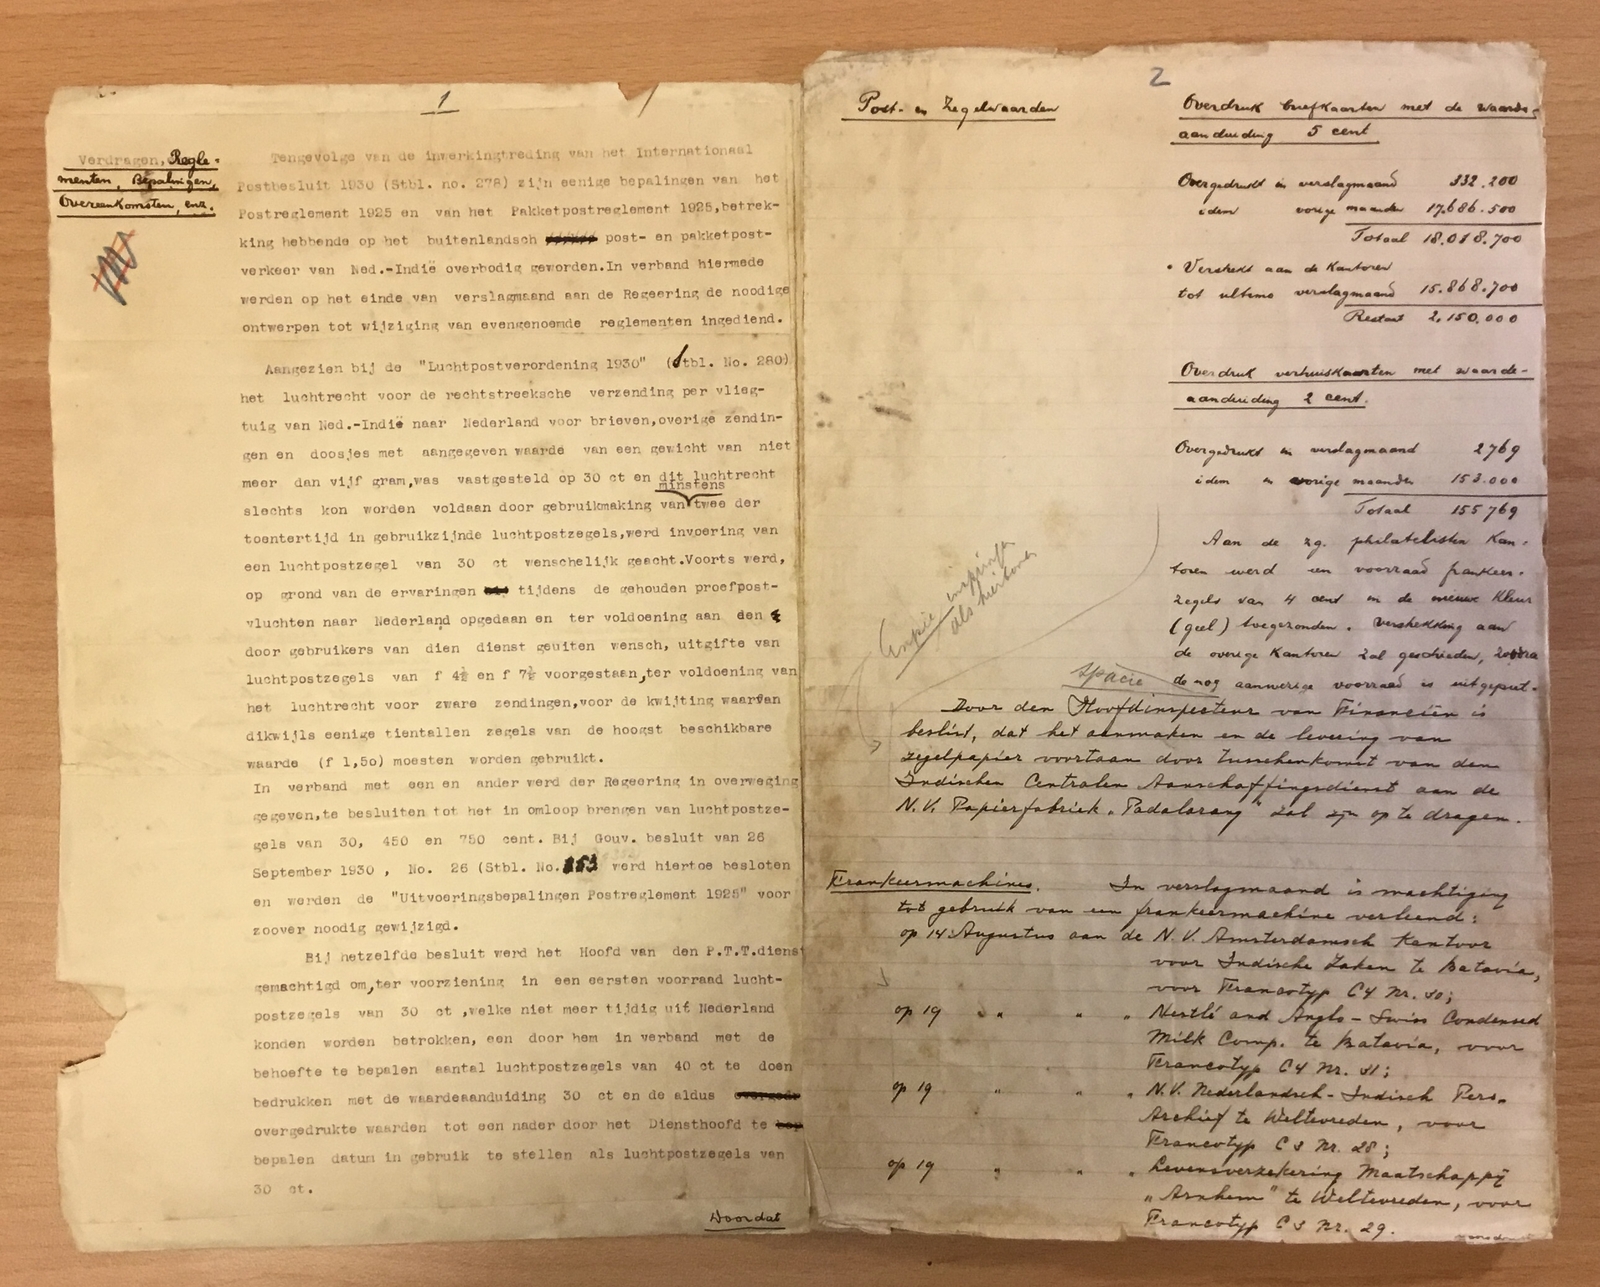 1
Verdragen, Regle-
menten, Bepalingen,
Overeenkomsten, enz.
Tengevolge van de inwerkingtreding van het Internationaal
Postbesluit 1930 (Stbl. no. 278) zijn eenige bepalingen van het
Postreglement 1925 en van het Pakketpostreglement 1925,betrek-
king hebbende op het buitenlandsch post- en pakketpost-
verkeer van Ned.-Indië overbodig geworden.In verband hiermede
werden op het einde van verslagmaand aan de Regeering de noodige
ontwerpen tot wijziging van evengenoemde reglementen ingediend.
Aangezien bij de "Luchtpostverordening 1930" (Stbl. No. 280)
het luchtrecht voor de rechtstreeksche verzending per vlieg-
tuig van Ned.-Indië naar Nederland voor brieven,overige zendin-
gen en doosjes met aangegeven waarde van een gewicht van niet
meer dan vijf gram,was vastgesteld op 30 ct en dit luchtrecht
minstens
slechts kon worden voldaan door gebruikmaking van twee der
toentertijd in gebruikzijnde luchtpostzegels,werd invoering van
een luchtpostzegel van 30 ct wenschelijk geacht.Voorts werd,
op grond van de ervaringen tijdens de gehouden proefpost-
vluchten naar Nederland opgedaan en ter voldoening aan den
door gebruikers van dien dienst geuiten wensch, uitgifte van
luchtpostzegels van f 4½ en f 7½ voorgestaan,ter voldoening van
het luchtrecht voor zware zendingen,voor de kwijting waarvan
dikwijls eenige tientallen zegels van de hoogst beschikbare
waarde (f 1,50) moesten worden gebruikt.
In verband met een en ander werd der Regeering in overweging
gegeven,te besluiten tot het in omloop brengen van luchtpostze-
gels van 30, 450 en 750 cent. Bij Gouv. besluit van 26
September 1930 , No. 26 (Stbl. No. 353 werd hiertoe besloten
en werden de "Uitvoeringsbepalingen Postreglement 1925" voor
zoover noodig gewijzigd.
Bij hetzelfde besluit werd het Hoofd van den P.T.T.dienst
gemachtigd om,ter voorziening in een eersten voorraad lucht-
postzegels van 30 ct ,welke niet meer tijdig uit Nederland
konden worden betrokken, een door hem in verband met de
behoefte te bepalen aantal luchtpostzegels van 40 ct te doen
bedrukken met de waardeaanduiding 30 ct en de aldus
overgedrukte waarden tot een nader door het Diensthoofd te
bepalen datum in gebruik te stellen als luchtpostzegels van
30 ct.
Doordat
2
Post- en Zegelwaarden
Overdruk briefkaarten met de waarde-
aanduiding 5 cent
Overgedrukt in verslagmaand 332.200
idem vorige maanden 17.686.500
Totaal 18.018.700
Verstrekt aan de Kantoren
tot ultimo verslagmaand 15.868.700
Restant 2,150,000
Overdruk verhuiskaarten met waarde-
aanduiding 2 cent.
Overgedrukt in verslagmaand 2769
idem in vorige maanden 153.000
Totaal 155769
Aan de zg. philatelisten Kan-
toren werd een voorraad frankeer-
zegels van 4 cent in de nieuwe Kleur
(geel) toegezonden. Verstrekking aan
de overige Kantoren zal geschieden, zoodra
de nog aanwezige voorraad is uitgeput.
inspringen
als hierboven
spacie
Door den Hoofdinspecteur van Financiën is
beslist, dat het aanmaken en de levering van
zegelpapier voortaan door tusschenkomst van den
Indischen Centralen Aanschaffingsdienst aan de
N.V. Papierfabriek „Padalarang" zal zijn op te dragen.
Frankeermachines. In verslagmaand is machtiging
tot gebruik van een frankeermachine verleend:
op 14 Augustus aan de N.V. Amsterdamsch Kantoor
voor Indische Zaken te Batavia,
voor Francotyp C4 Nr. 30;
op 19 " " " Nestlé and Anglo-Swiss Condensed
Milk Comp. te Batavia, voor
Francotyp C4 Nr. 31;
op 19 " " " N.V. Nederlandsch-Indisch Pers-
Archief te Weltevreden, voor
Francotyp C3 Nr. 28;
op 19 " " " Levensverzekering Maatschappij
„Arnhem" te Weltevreden, voor
Francotyp C3 Nr. 29.